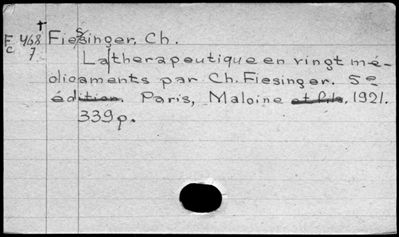 F 468 Fiessinger, Ch.
c 7
La therapeutique en vingt mé-
dicaments par Ch. Fiesinger. 5e
édition. Paris, Maloine et fils, 1921.
339p.